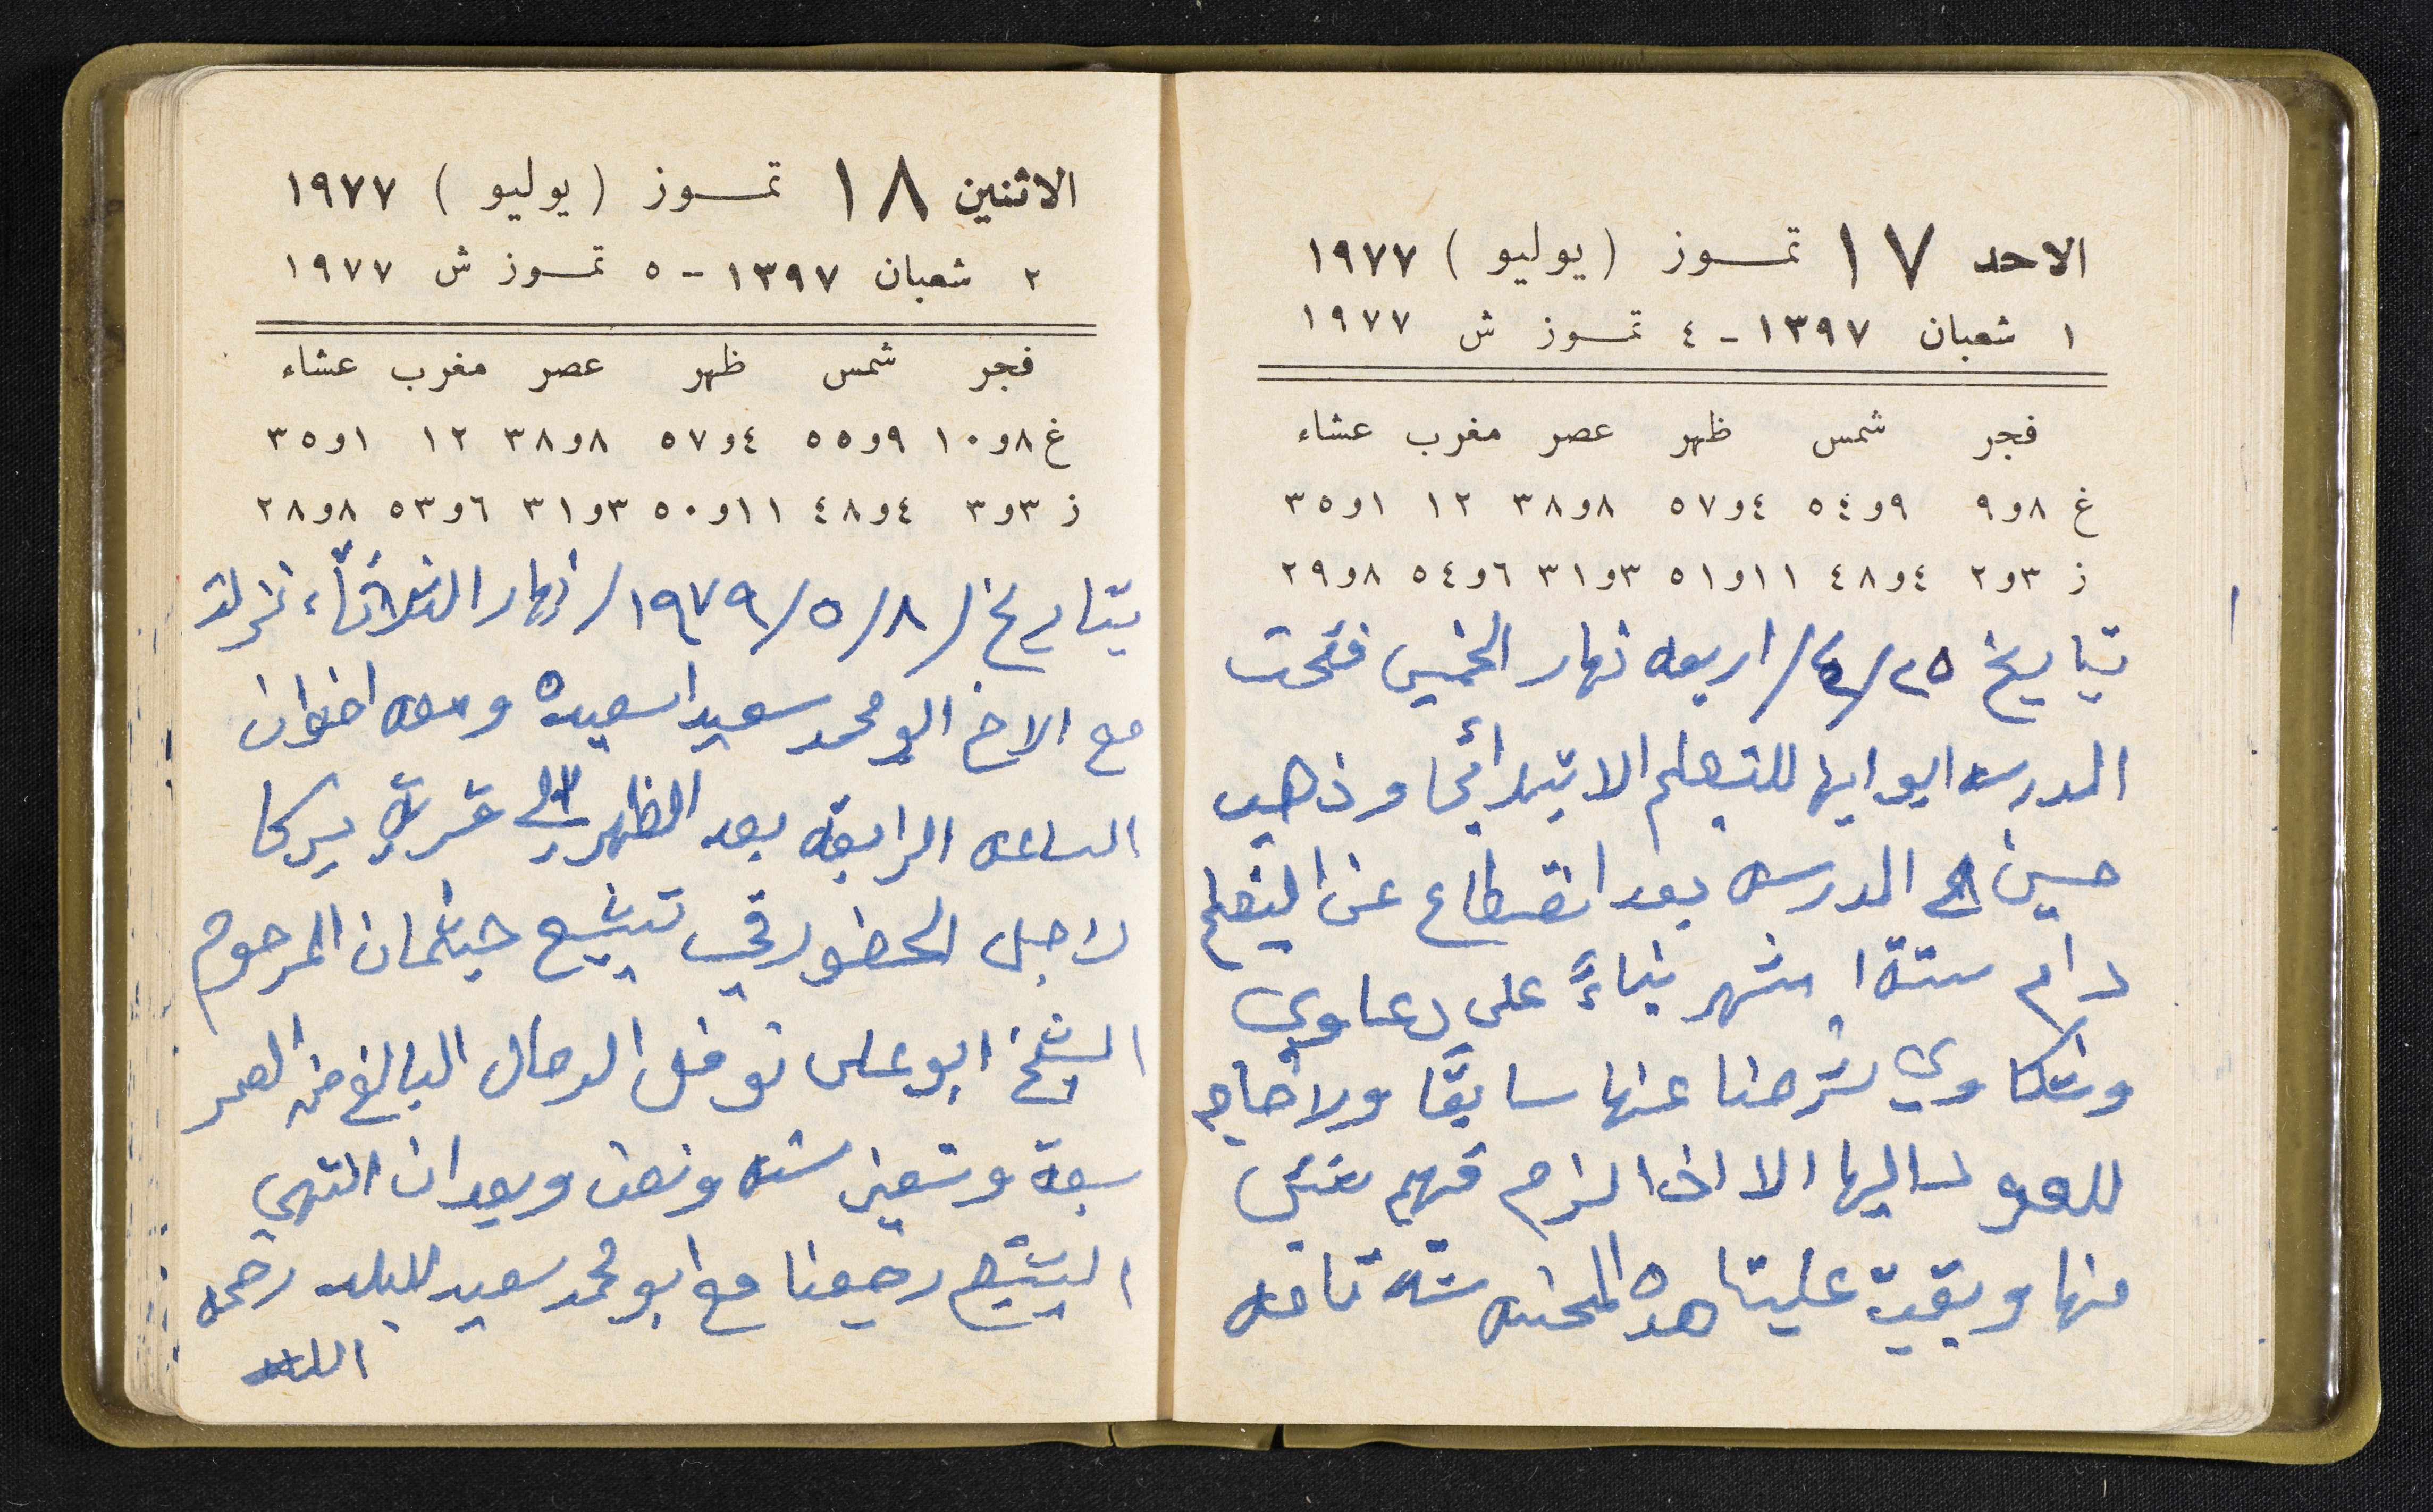 الاحد ١٧ تموز (يوليو) ١٩٧٧
١ شعبان ١٣٩٧ - ٤ تموز ش ١٩٧٧
فجر شمس ظهر عصر مغرب عشاء
غ ٨و٩ ٩و٥٤ ٤و٥٧ ٨و٣٨ ١٢ ١و٣٥
ز ٣و٢ ٤و٤٨ ١١و٥١ ٣و٣١ ٦و٥٤ ٨و٢٩
بتاريخ ٢٥/٤/اربعه نهار الخميس فتحت
المدرسه ابوابها للتعلم الابتدائي وذهب
حسين الى المدرسه بعد انقطاع عن التعلم
دام ستة اشهر بناءً على دعاوي
وشكاوي شرحنا عنها سابقا ولا حاجه
للعوده اليها الا اذا لزم فهم شيء
منها وبقيت علينا هذه المحنه سنه تامه
الاثنين ١٨ تموز (يوليو) ١٩٧٧
٢ شعبان ١٣٩٧ - ٥ تموز ش ١٩٧٧
فجر شمس ظهر عصر مغرب عشاء
غ ٨و١٠ ٩و٥٥ ٤و٥٧ ٨و٣٨ ١٢ ١و٣٥
ز ٣و٣ ٤و٤٨ ١١و٥٠ ٣و٣١ ٦و٥٣ ٨و٢٨
بتاريخ /٨/٥/١٩٧٩/ نهار الثلاثاء نزلت
مع الاخ ابو محمد سعيد اسعيده ومعه اخوان
الساعه الرابعه بعد الظهر الى قرية يركا
لاجل الحضور في تشييع جثمان المرحوم
الشيخ ابو علي نوفل الرمال البالغ من العمر
سبعة وتسعين سنه ونصف وبعد ان انتهى
التشييع رجعنا مع ابو محمد سعيد للبلد رحمه
الله